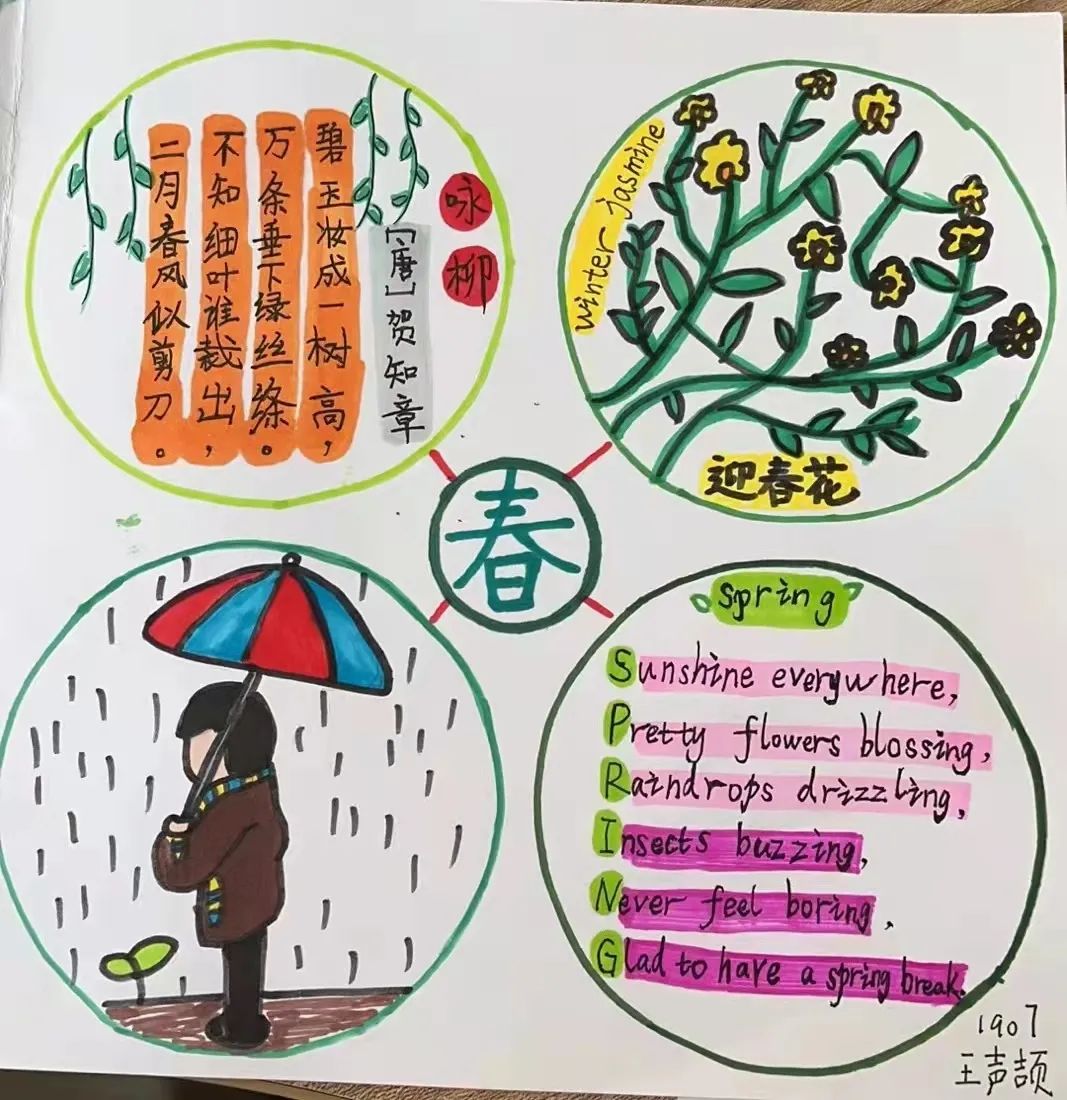 咏柳
[唐]贺知章
碧玉妆成一树高，
万条垂下绿丝绦。
不知细叶谁裁出，
二月春风似剪刀。
winter jasmine
迎春花
春
spring
Sunshine everywhere,
Pretty flowers blossing,
Raindrops drizzling,
Insects buzzing,
Never feel boring,
Glad to have a spring break.
1907
王声颉